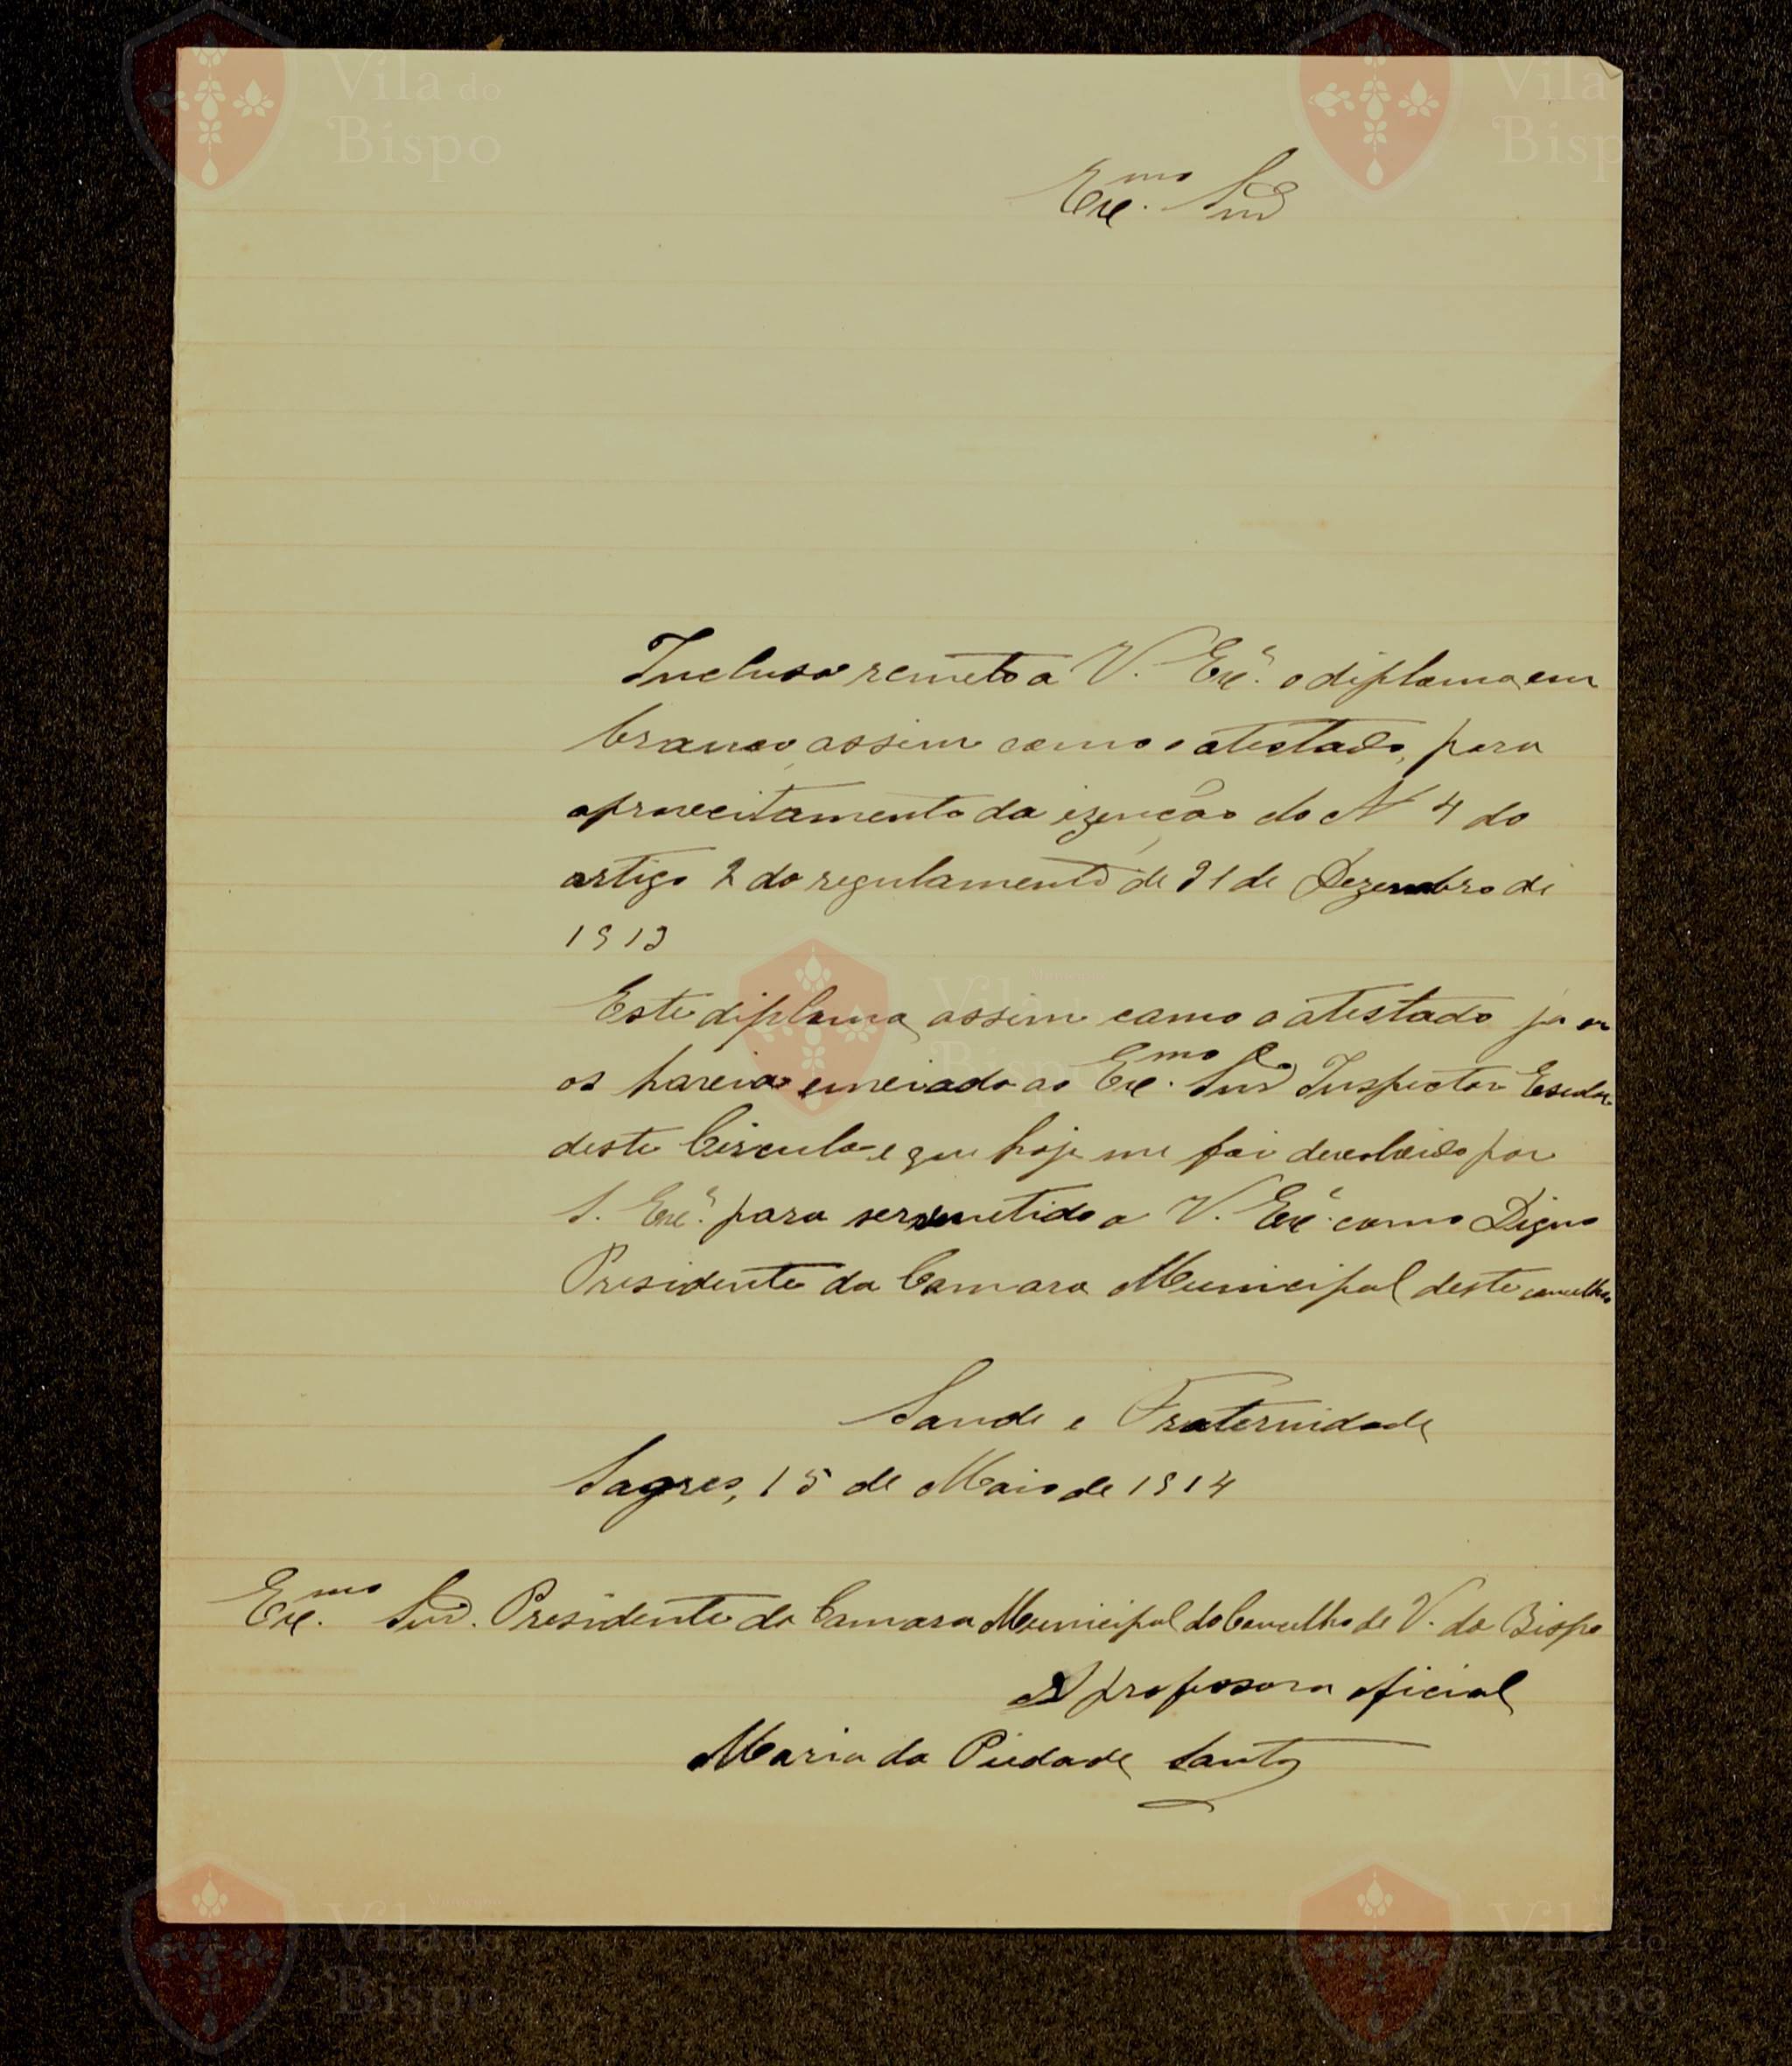 Vila do
Bispo
Vila do
Bispo
Exc.mo Snr
Incluso remeto a V. Exc.ª o diploma em
branco, assim como o atestado, para
aproveitamento da izenção do Nº 4 do
artigo 2 do regulamento de 31 de Dezembro de
1913
Este diploma, assim como o atestado já eu
os haveia enveiado ao Exc.mo Snr Inspector Escolar
deste Circulo e que hoje me foi devolvido por
S. Exc.ª para ser remetido a V. Exc.ª como Digno
Presidente da Camara Municipal deste concelho
Vila do
Bispo
Saude e Fraternidade
Sagres, 15 de Maio de 1914
Exc.mo Snr. Presidente da Camara Municipal do Concelho de V. do Bispo
A professora oficial
Maria da Piedade Santos
Vila do
Bispo
Vila do
Bispo